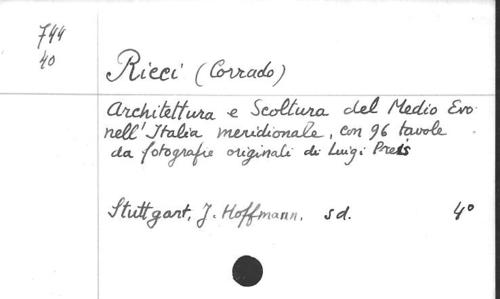 744
40
Ricci (Corrado)
Architettura e Scoltura del Medio Evo
nell'Italia meridionale, con 96 tavole
da fotografie originali di Luigi Preis
Stuttgart, J. Hoffmann, sd. 4°